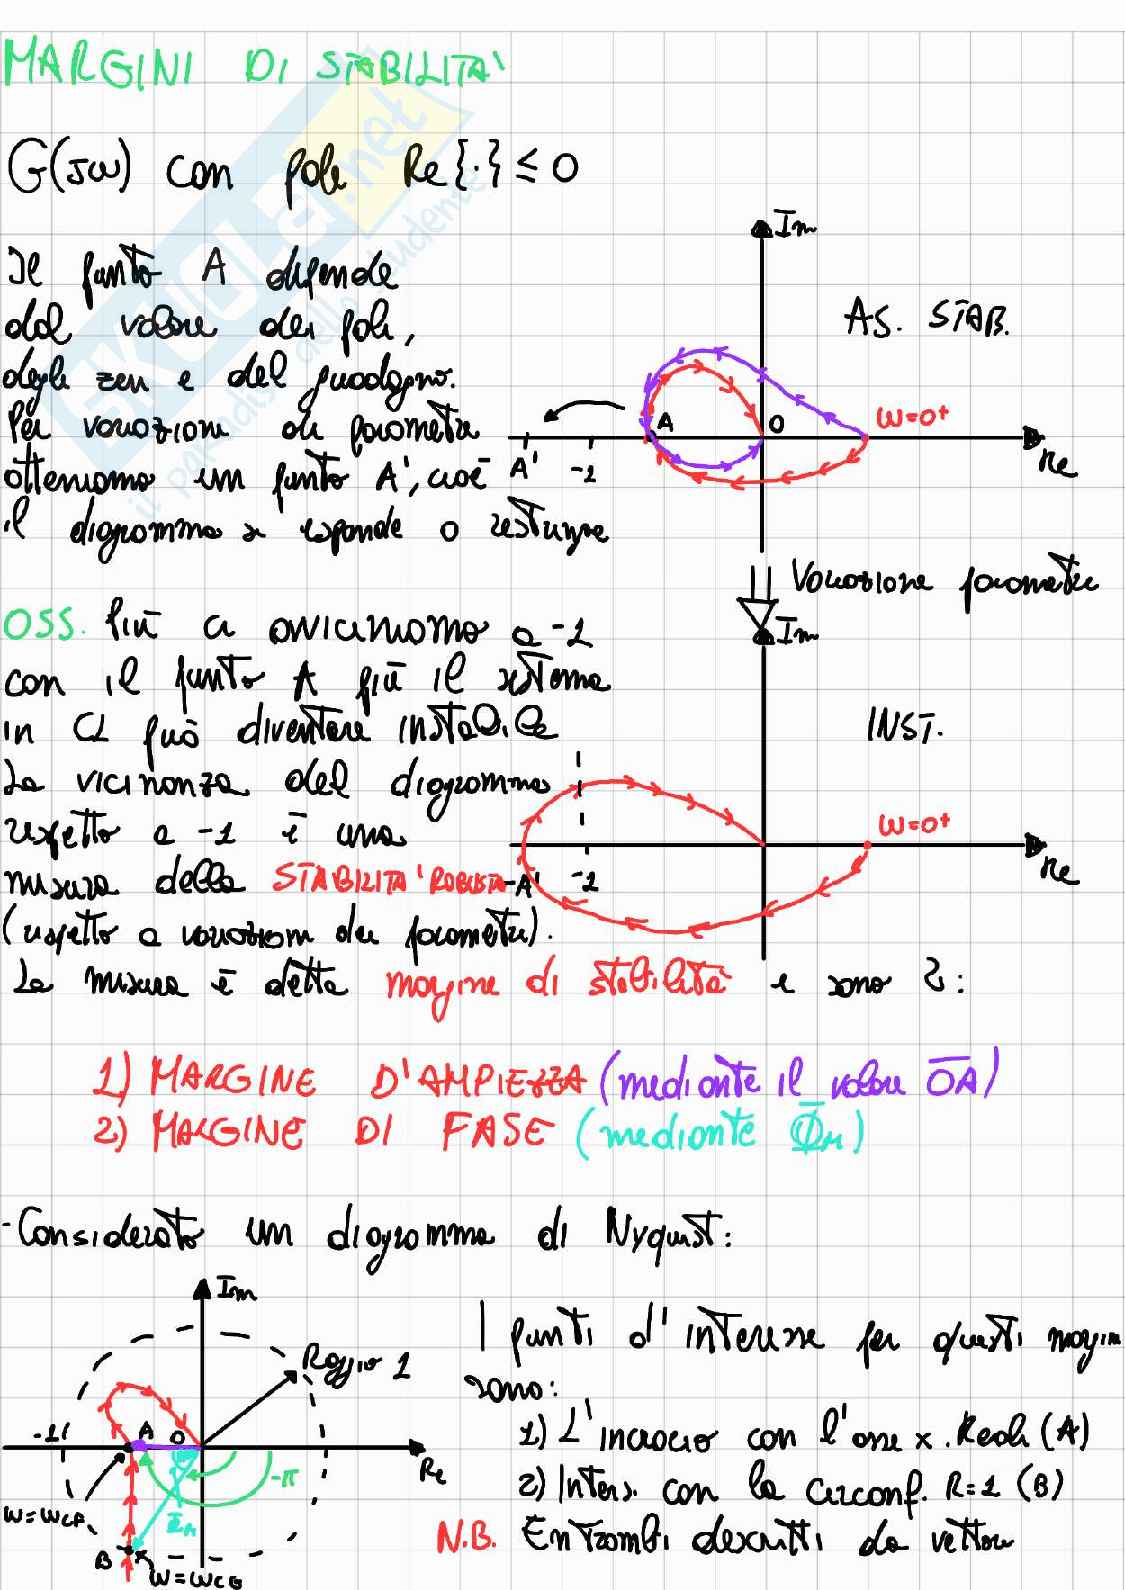 MARGINI DI STABILITA'
G(jω) con poli Re{·} ≤ 0
Im
Il punto A dipende
dal valore dei poli,
degli zeri e del guadagno.
Per variazioni di parametri
otteniamo un punto A', cioè
il diagramma si espande o restringe
AS. STAB.
A O ω=0+
A' -1 Re
Variazione parametri
OSS. Più ci avviciniamo a -1
con il punto A più il sistema
in CL può diventare instabile
La vicinanza del diagramma
rispetto a -1 è una
misura della STABILITA' ROBUSTA
(rispetto a variazioni dei parametri).
Im
INST.
ω=0+
-A' -1 Re
La misura è detta margine di stabilità e sono 2:
1) MARGINE D'AMPIEZZA (mediante il valore OA)
2) MARGINE DI FASE (mediante ΦM)
-Considerato un diagramma di Nyquist:
Im
Raggio 1
-1 A O
-π Re
ω=ωCF
ΦM
B ω=ωCG
I punti d'interesse per questi margini
sono:
1) L'incrocio con l'asse x. Reali (A)
2) Inters. con la circonf. R=1 (B)
N.B. Entrambi descritti da vettori
SKUOLA.net
il paradiso dello studente